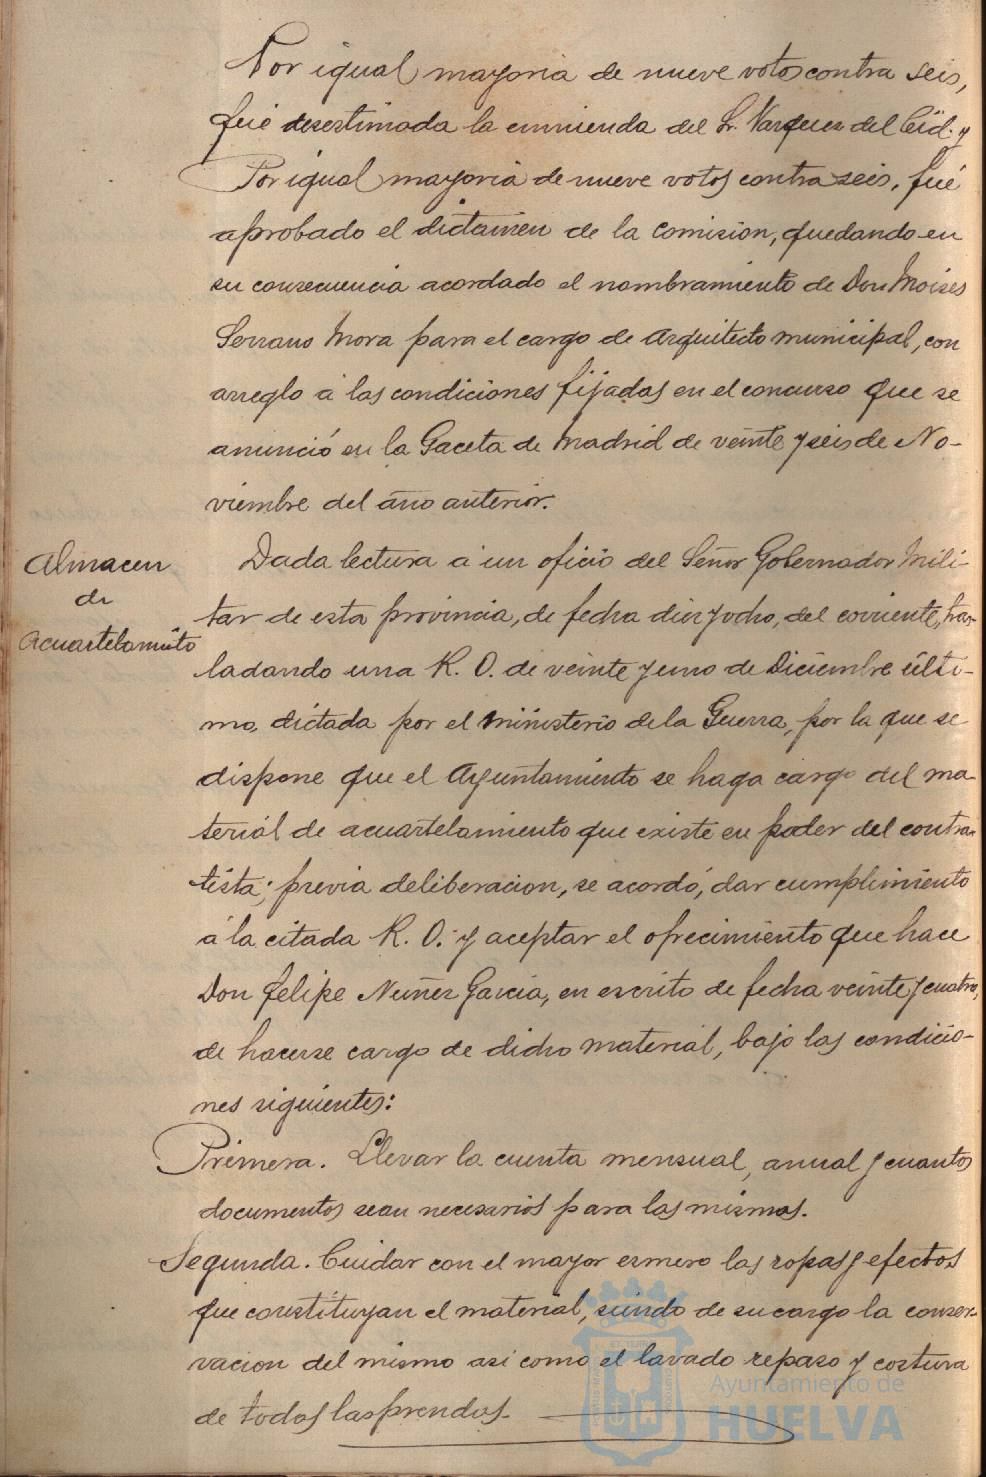 Por igual mayoria de nueve votos contra seis,
fué desestimada la enmienda del Sr. Vazquez del Cid. y
Por igual mayoria de nueve votos contra seis, fué
aprobado el dictamen de la Comision, quedando en
su consecuencia acordado el nombramiento de Don Moises
Serrano Mora para el cargo de Arquitecto municipal, con
arreglo á las condiciones fijadas en el concurso que se
anunció en la Gaceta de Madrid de veinte y seis de No-
viembre del año anterior.
Almacen
de
Acuartelamiento
Dada lectura á un oficio del Señor Gobernador Mili-
tar de esta provincia, de fecha diez y ocho, del corriente, tras-
ladando una R. O. de veinte y uno de Diciembre últi-
mo, dictada por el Ministerio de la Guerra, por la que se
dispone que el Ayuntamiento se haga cargo del ma-
terial de acuartelamiento que existe en poder del contra-
tista; previa deliberacion, se acordó, dar cumplimiento
á la citada R. O. y aceptar el ofrecimiento que hace
Don Felipe Nuñez Garcia, en escrito de fecha veinte y cuatro,
de hacerse cargo de dicho material, bajo las condicio-
nes siguientes:
Primera. Llevar la cuenta mensual, anual y cuantos
documentos sean necesarios para las mismas.
Segunda. Cuidar con el mayor esmero las ropas y efectos
que constituyan el material, siendo de su cargo la conser-
vacion del mismo asi como el lavado repaso y costura
de todas las prendas.
Ayuntamiento de
HUELVA